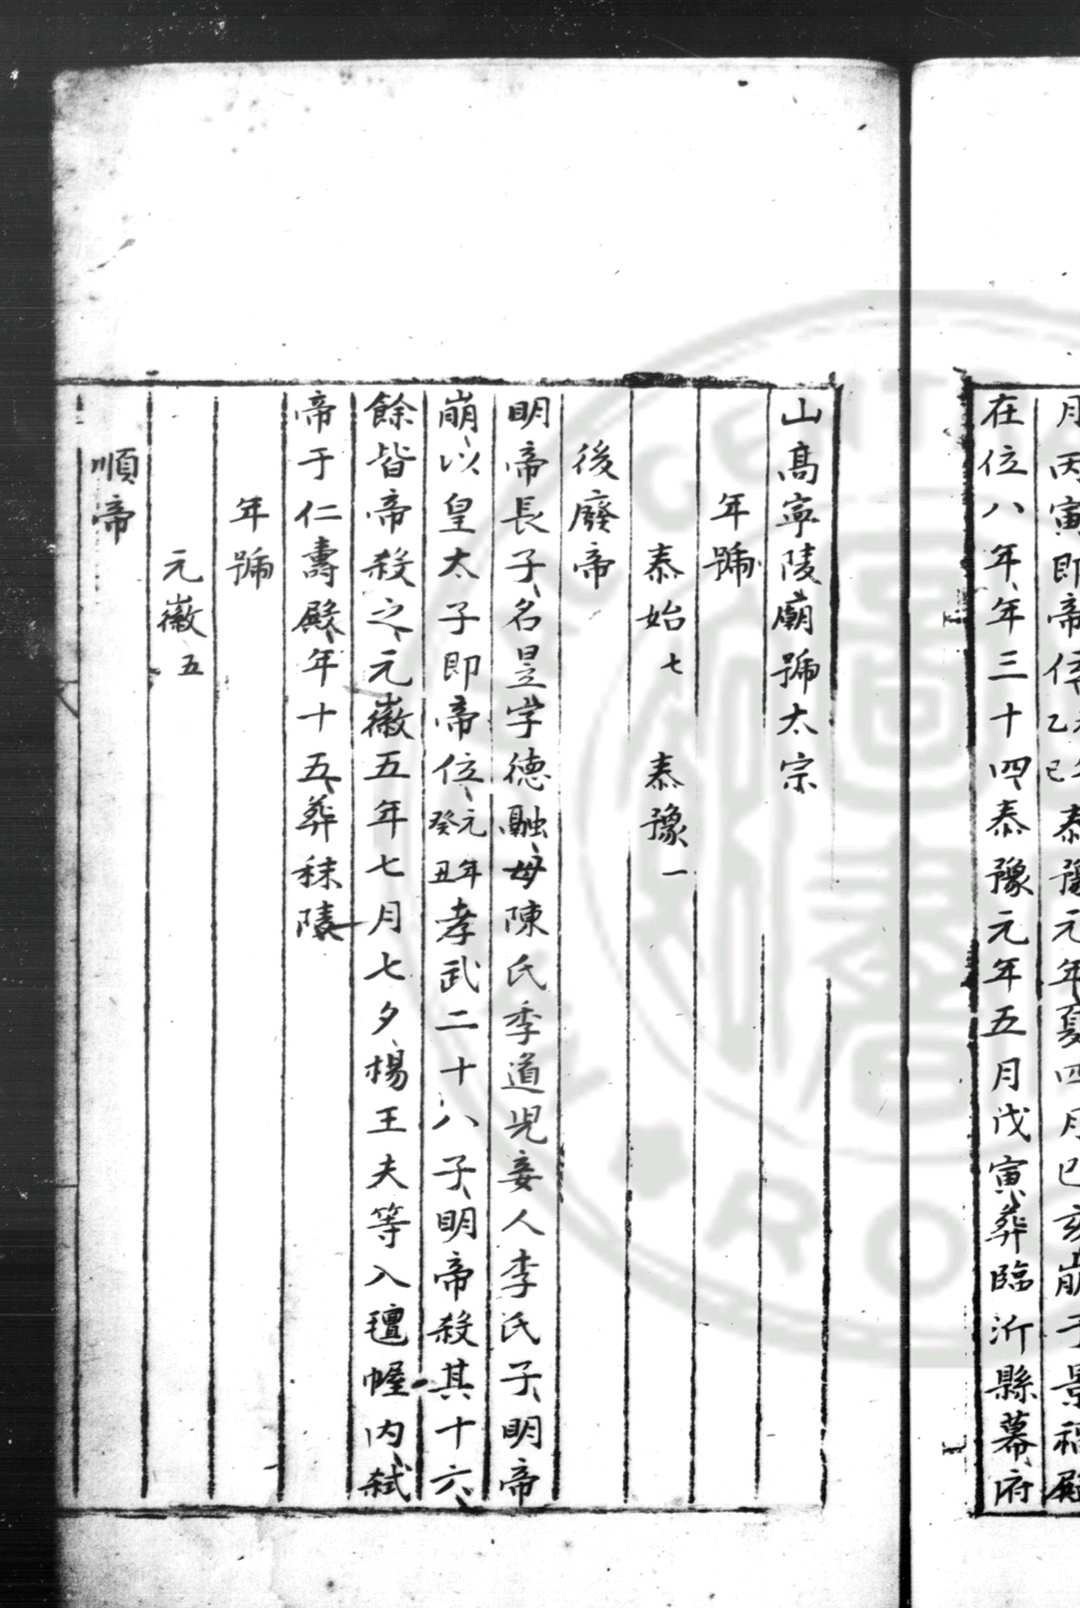 月丙寅即帝位乙巳年泰豫元年夏四月己亥崩于景福殿
在位八年年三十四泰豫元年五月戊寅葬臨沂縣幕府
山高寧陵廟號太宗
年號
泰始七 泰豫一
後廢帝
明帝長子名昱字德融母陳氏季道児妾人李氏子明帝
崩以皇太子即帝位元年癸丑孝武二十八子明帝殺其十六
餘皆帝殺之元徽五年七月七夕楊王夫等入氊幄内弑
帝于仁壽殿年十五葬秣陵
年號
元徽五
順帝